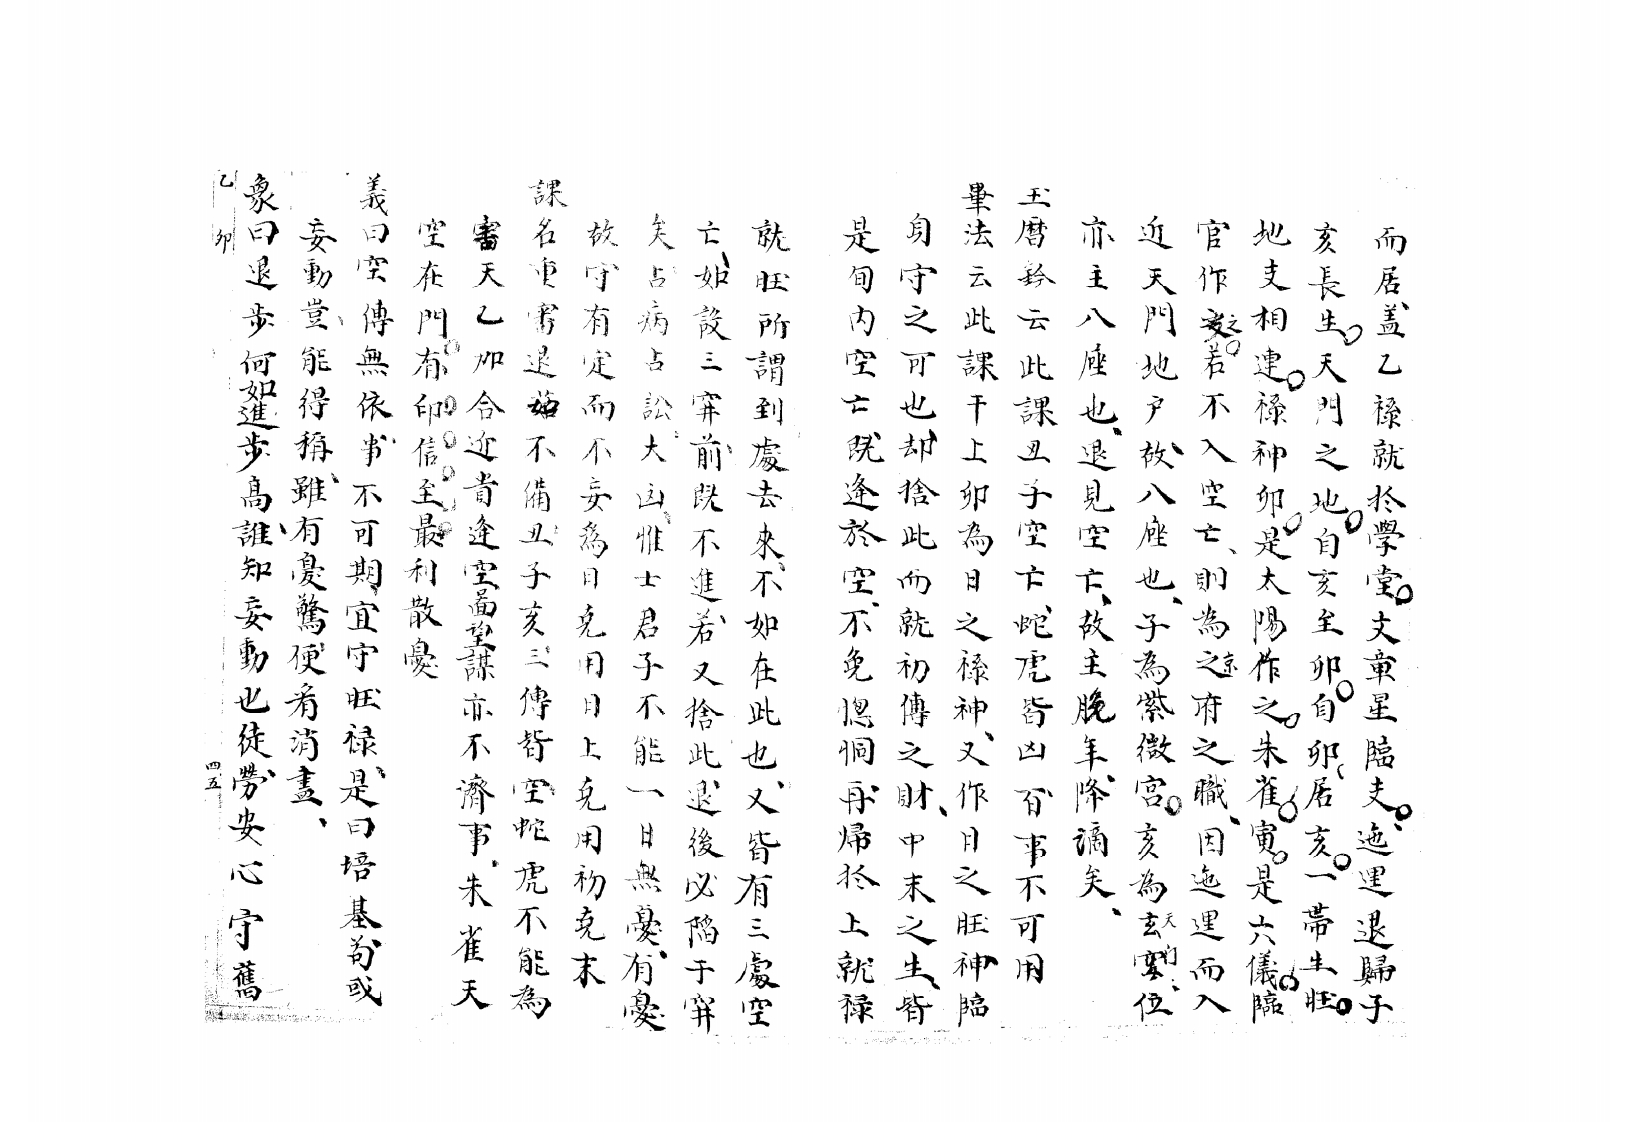 而居盖乙祿就於學堂文章星臨支迤逕退歸子
亥長生天門之地自亥至卯自卯居亥一帶生旺
地支相連祿神卯是太陽作之朱雀寅是六儀臨
官作之若不入空亡則為之京府之職因迤逕而入
近天門地户故八座也子為紫微宮亥為天門玄伍
亦主八座也退見空亡故主晚年降謫矣
玉曆鈐云此課丑子空亡蛇虎皆凶百事不可用
畢法云此課干上卯為日之祿神又作日之旺神臨
身守之可也却捨此而就初傳之財中末之生皆
是旬內空亡既逢於空不免惚恫再歸於上就祿
就旺所謂到處去來不如在此也又皆有三處空
亡如設三穽前既不進若又捨此退後必陷于穽
矣占病占訟大凶惟士君子不能一日無憂有憂
故守有定而不妄為日克用日上克用初克末
課名重審退茹不備丑子亥三傳皆空蛇虎不能為
害天乙加合近貴逢空啚望謀亦不濟事朱雀天
空在門有印信至最利散憂
義曰空傳無依事不可期宜守旺禄是曰培基苟或
妄動豈能得稱雖有憂驚便看消盡
象曰退步何如進步高誰知妄動也徒勞安心守舊
乙卯
四五